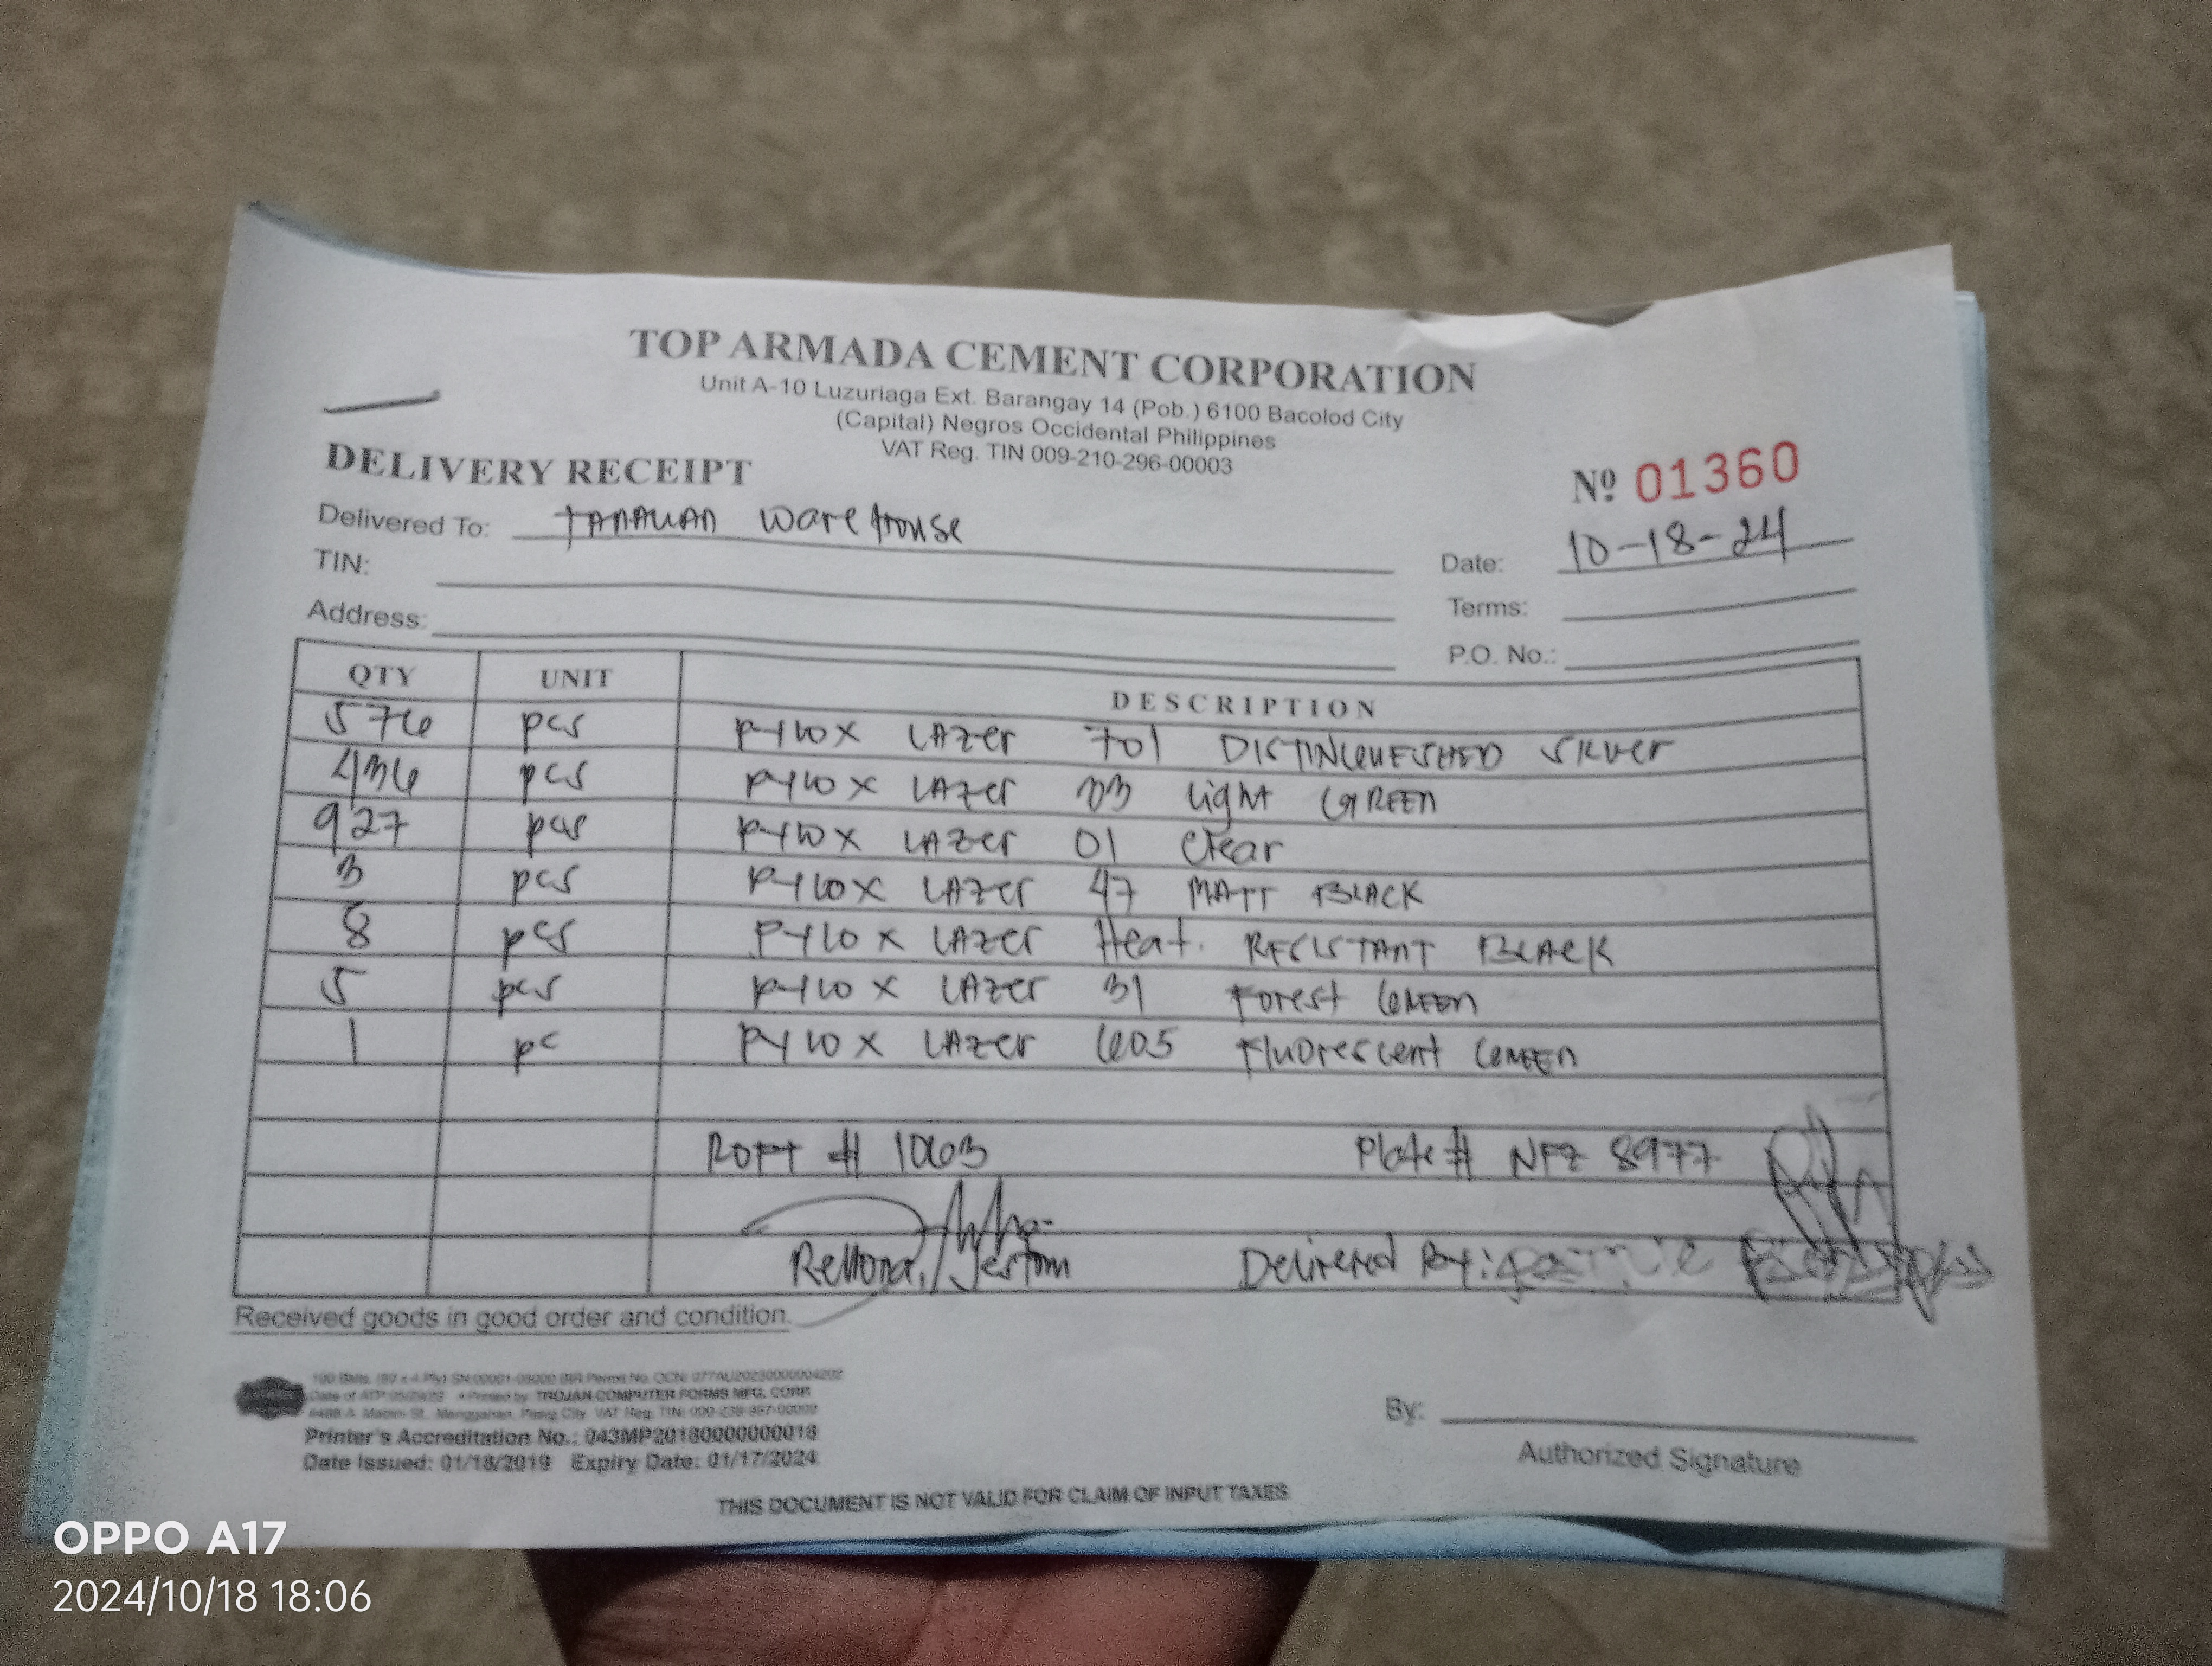 TOP ARMADA CEMENT CORPORATION
Unit A-10 Luzuriaga Ext. Barangay 14 (Pob.) 6100 Bacolod City
(Capital) Negros Occidental Philippines
VAT Reg. TIN 009-210-296-00003
DELIVERY RECEIPT
Nº 01360
Delivered To: TANAUAN WareHouse
Date: 10-18-24
TIN:
Terms:
Address:
P.O. No.:
QTY UNIT DESCRIPTION
576 pcs PYLOX LAZer 701 DISTINQUESHED SILVer
436 pcs PYLOX LAZer 03 Light GREEN
927 pcs PYLOX LAZer 01 Clear
3 pcs PYLOX LAZer 47 MATT BLACK
8 pcs PYLOX LAZer Heat. RESISTANT BLACK
5 pcs PYLOX LAZer 31 Forest GREEN
1 pc PYLOX LAZer 605 Fluorescent GREEN
# 1063 Plate# NFZ 8977
Jestom Delivered By:
Received goods in good order and condition.
Printed by: TROJAN COMPUTER FORMS MFG. CORP.
Printer's Accreditation No.: 043MP20180000000018
Date Issued: 01/18/2019 Expiry Date: 01/17/2024
By:
Authorized Signature
THIS DOCUMENT IS NOT VALID FOR CLAIM OF INPUT TAXES
OPPO A17
2024/10/18 18:06